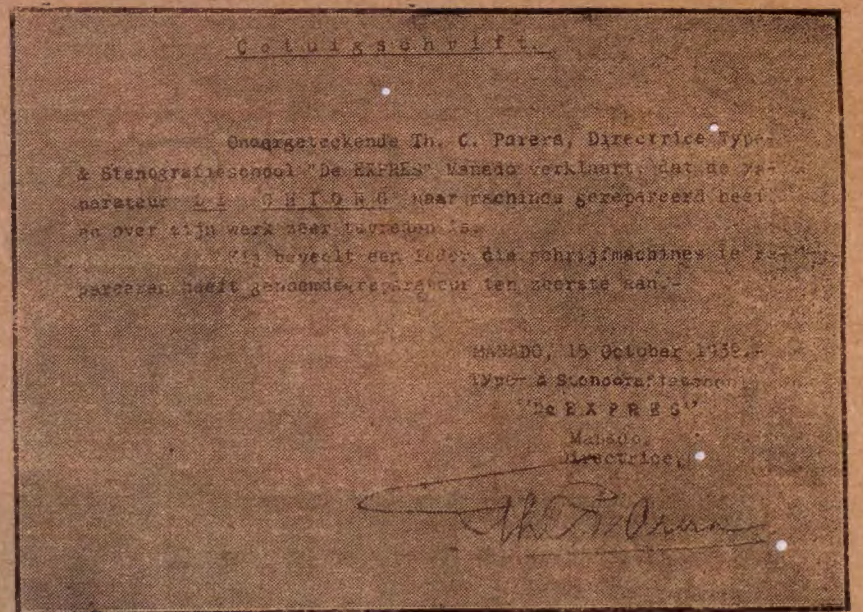 Getuigschrift.
Ondergeteekende Th. C. Parera, Directrice Type-
& Stenografieschool "De EXPRES" Manado verklaart, dat de re-
parateur LI CHIONG haar machines gerepareerd heeft
en over zijn werk zeer tevreden is.
Zij beveelt een ieder die schrijfmachines te re-
pareeren heeft genoemde reparateur ten zeerste aan.-
MANADO, 15 October 1938.-
Type- & Stenografieschool
"De EXPRES"
Manado.
Directrice,
Th C Parera